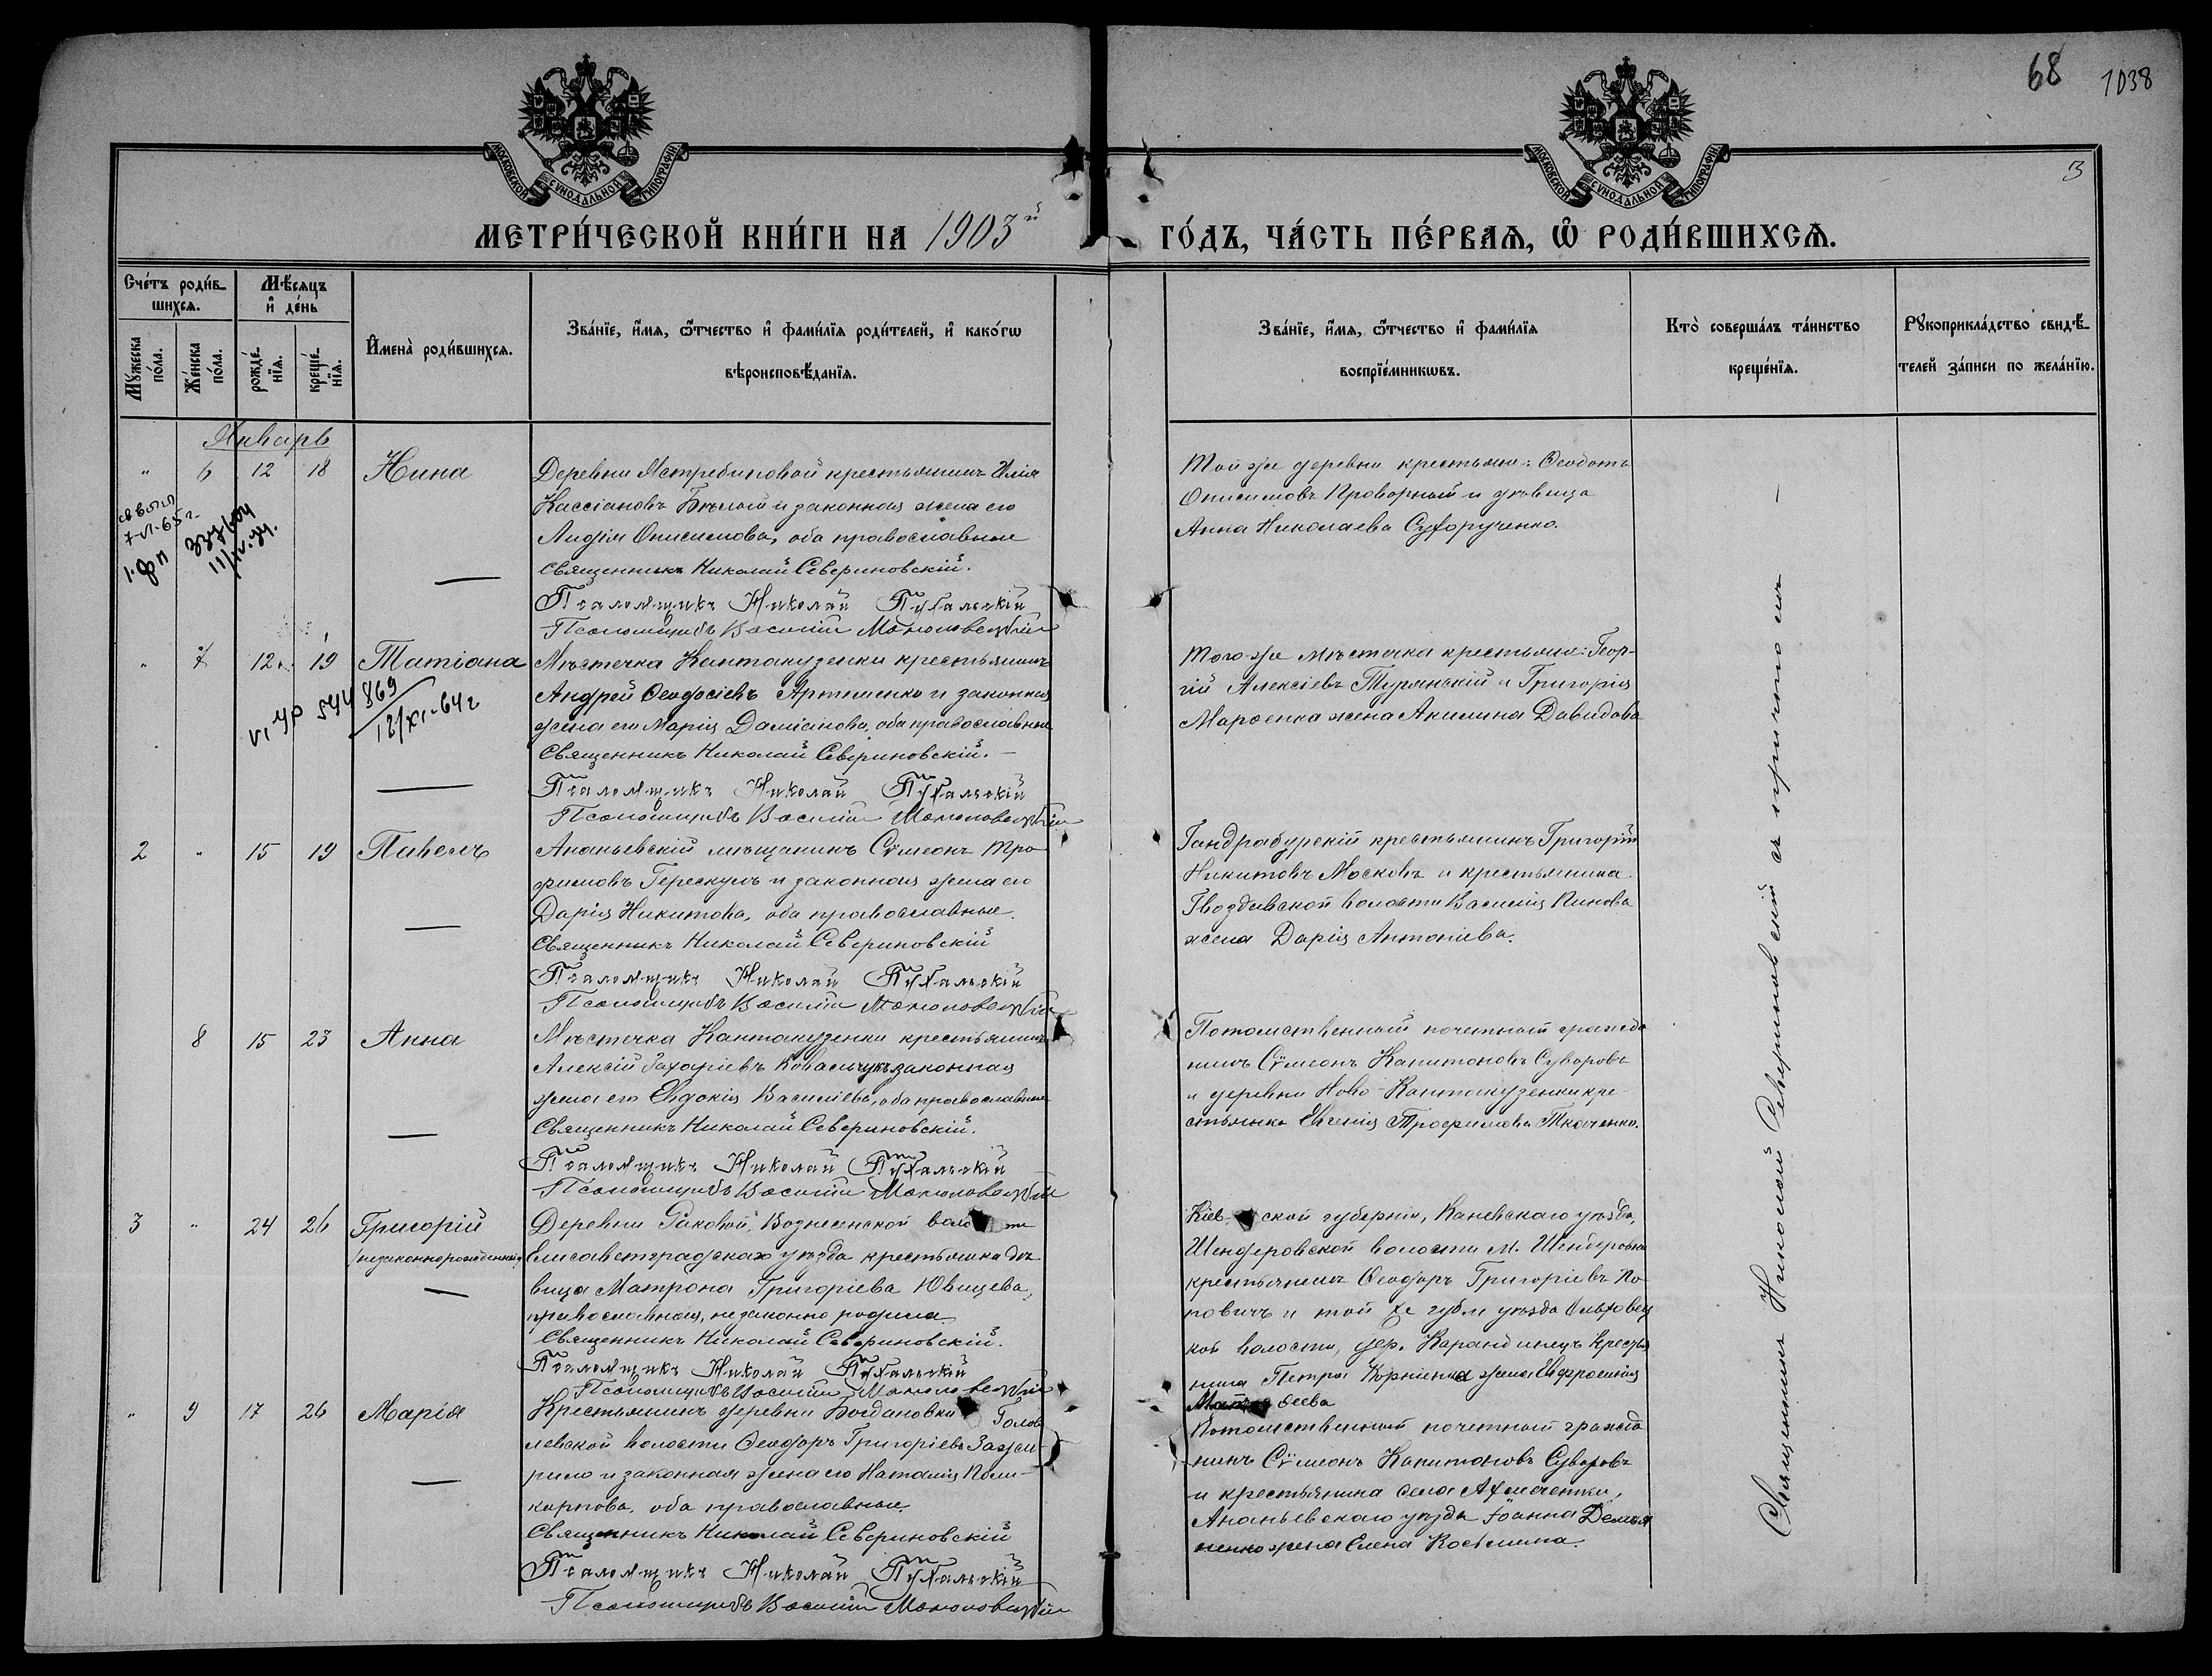 68 1038
13
МОСКОВСКОЙ СѴНОДАЛЬНОЙ ТИПОГРАФІИ
МОСКОВСКОЙ СѴНОДАЛЬНОЙ ТИПОГРАФІИ
МЕТРИ́ЧЕСКОЙ КНИ́ГИ НА 1903й ГО́ДЪ, ЧА́СТЬ ПЕ́РВАѦ, Ѡ҆ РОДИ́ВШИХСѦ.
Сче́тъ роди́в-
шихсѧ.
Мѣ́сяцъ
и҆ де́нь
Мꙋ́жеска по́ла.
Же́нска по́ла.
рожде́-нїѧ.
креще́-нїѧ.
И҆мена̀ роди́вшихсѧ.
Зва́нїе, и҆́мѧ, ѻ҆́тчество и҆ фами́лїѧ роди́телей, и҆ како́гѡ
вѣроисповѣ́данїѧ.
Зва́нїе, и҆́мѧ, ѻ҆́тчество и҆ фами́лїѧ
воспрїе́мникѡвъ.
Кто̀ соверша́лъ та́инство
креще́нїѧ.
Рꙋкоприкла́дство свидѣ́-
телей за́писи по жела́нїю.
Январь
" 6 12 18 Нина
Деревни Ястребиновой крестьянинъ Илія
Кассіановъ Бѣлый и законная жена его
Лидія Онисимова, оба православные
Священникъ Николай Севериновскій.
Псаломщикъ Николай Пухальскій
Псаломщикъ Василій
Той же деревни крестьяне: Ѳеодотъ
Онисимовъ Проворный и дѣвица
Анна Николаева Сухорученко.
" 7 12 19 Татіана
VI-УР 544869
12/XI-64г
Мѣстечка Кантакузенки крестьянинъ
Андрей Ѳеодосіевъ Артеменко и законная
жена его Марія Даміанова, оба православные
Священникъ Николай Севериновскій.
Псаломщикъ Николай Пухальскій
Псаломщикъ Василій
Того-же мѣстечка крестьяне: Геор-
гій Алексіевъ Турянскій и Григорія
Марченка жена Акилина Давидова
2 " 15 19 Павелъ
Ананьевскій мѣщанинъ Сѷмеонъ Тро-
фимовъ Герескулъ и законная жена его
Дарія Никитова, оба православные.
Священникъ Николай Севериновскій
Псаломщикъ Николай Пухальскій
Псаломщикъ Василій
Гандрабурскій крестьянинъ Григорій
Никитовъ Московъ и крестьянина
Гвоздавской волости Василія Пинова
жена Дарія Антоніева.
8 15 23 Анна
Мѣстечка Кантакузенки крестьянинъ
Алексій Захаріевъ Ковальчукъ законная
жена его Евдокія Василіева, оба православные
Священникъ Николай Севериновскій.
Псаломщикъ Николай Пухальскій
Псаломщикъ Василій
Потомственный почетный гражда-
нинъ Сѷмеонъ Капитоновъ Суворовъ
и деревни Ново-Кантакузенки кре-
стьянка Евгенія Трофимова Ткаченко.
3 " 24 26 Григорій
(незаконнорожденный)
Деревни Раковой, Вознесенской волости
Елисаветградскаго уѣзда крестьянка дѣ-
вица Матрона Григоріева Ювщева,
православная, незаконно родила
Священникъ Николай Севериновскій.
Псаломщикъ Николай Пухальскій
Псаломщикъ Василій
Кіевской губерніи, Каневскаго уѣзда,
Шендеровской волости м. Шендеровки
крестьянинъ Ѳеодоръ Григоріевъ По-
повичъ и той же губ. и уѣзда Ольховец-
кой волости, дер. крестья-
нина Петра Корніенка жена Евфросинія
Матѳеева
" 9 17 26 Марія
Крестьянинъ деревни Богдановки Голов-
левской волости Ѳеодоръ Григоріевъ Зажи-
рило и законная жена его Наталія Поли-
карпова, оба православные.
Священникъ Николай Севериновскій
Псаломщикъ Николай Пухальскій
Псаломщикъ Василій
Потомственный почетный гражда-
нинъ Сѷмеонъ Капитоновъ Суворовъ
и крестьянина села Ахмечетки,
Ананьевскаго уѣзда Іоанна Демья-
ненко жена Елена Косьмина.
Священникъ Николай Севериновскій съ причтомъ